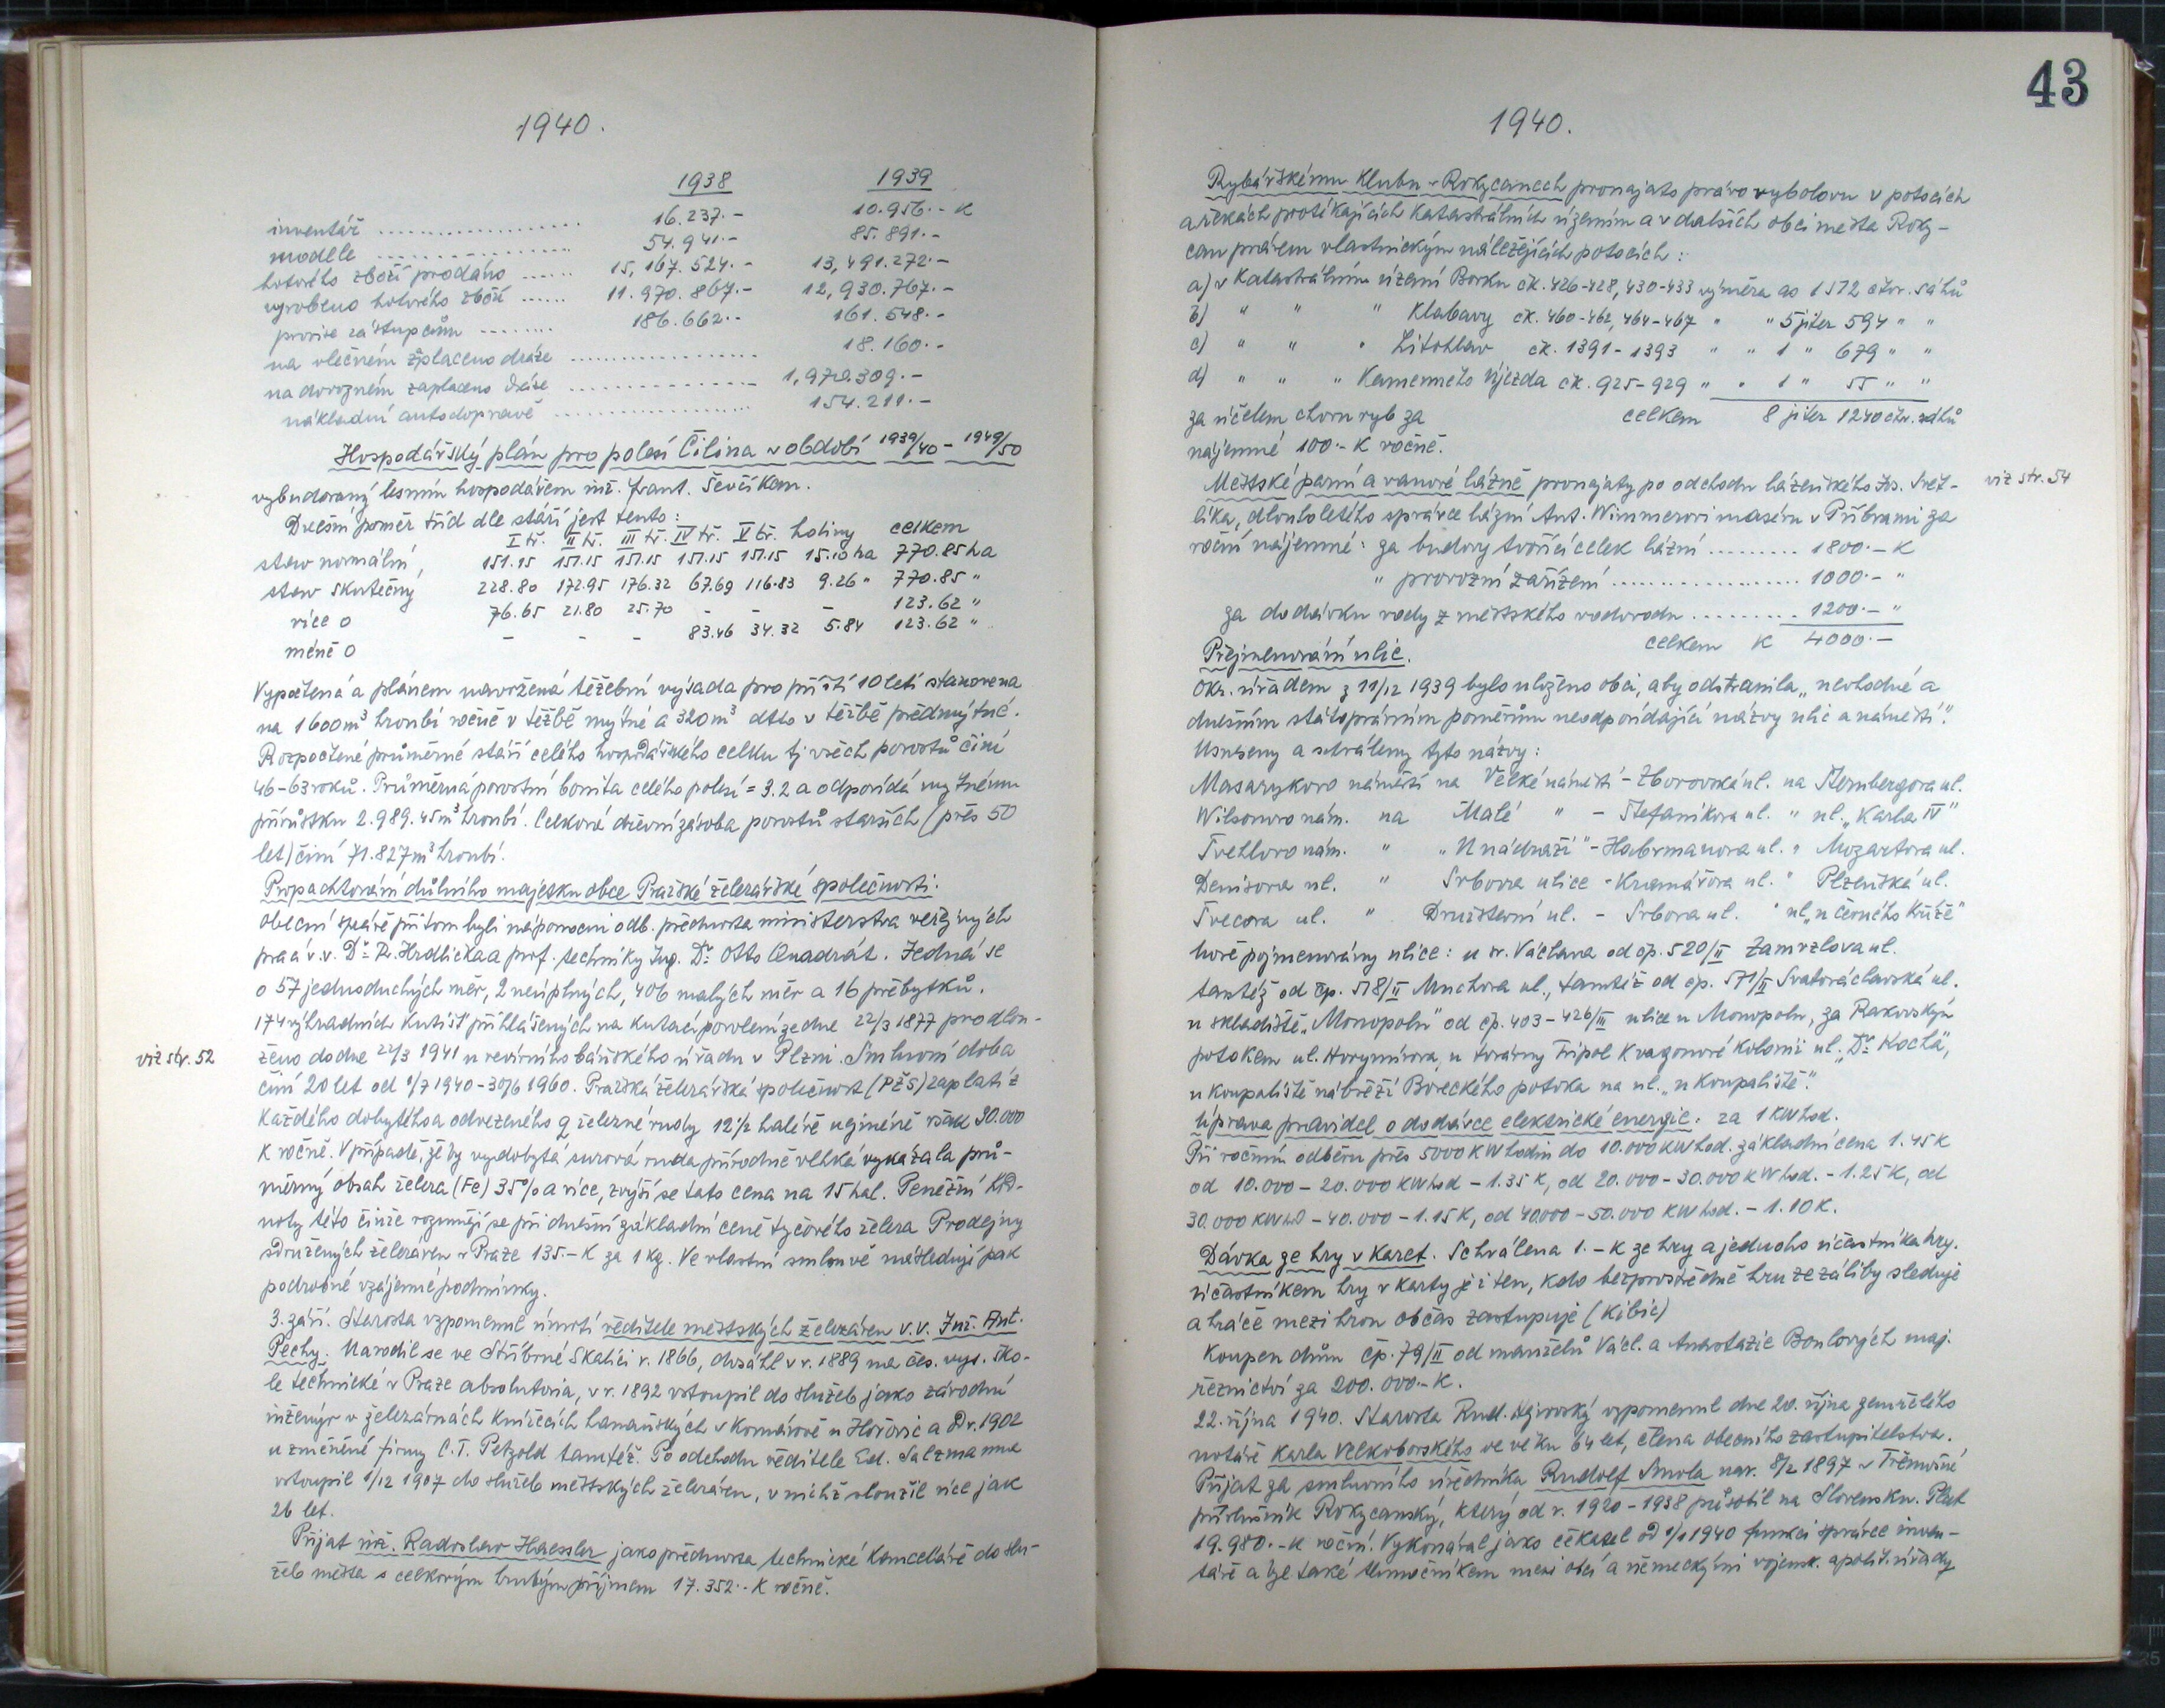 1940.
1938 1939
inventář .................. 16.237.- 10.956.- K
modelle .................. 54.941.- 85.891.-
hotového zboží prodáno ...... 15,167.524.- 13,491.272.-
vyrobeno hotového zboží ...... 11.970.867.- 12,930.767.-
provise zástupcům ........ 186.662.- 161.548.-
na vlečném zplaceno dráze .................. 18.160.-
na dovozném zaplaceno dráze ..................
nákladní autodopravě .................. 154.211.-
Hospodářský plán pro polesí Čilina v období 1939/40 - 1949/50
vybudovaný lesním hospodářem inž. Frant. Ševčíkem.
Dnešní poměr tříd dle stáří jest tento:
I tř. II tř. III tř. IV tř. V tř. holiny celkem
stav normální, 151.15 151.15 151.15 151.15 151.15 15.10 ha 770.85 ha
stav skutečný 228.80 172.95 176.32 67.69 116.83 9.26 " 770.85 "
více o 76.65 21.80 25.70 - - - 123.62 "
méně o - - - 83.46 34.32 5.84 123.62 "
Vypočtená a plánem navržená těžební výsada pro příští 10letí stanovena
na 1600 m³ hroubí ročně v těžbě mýtné a 320 m³ dtto v těžbě předmýtné.
Rozpočtené průměrné stáří celého hospodářského celku tj všech porostů činí
46-63 roků. Průměrná porostní bonita celého polesí = 3.2 a odpovídá mýtnému
přírůstku 2.989.45 m³ hroubí. Celková dřevní zásoba porostů starších (přes 50
let) činí 71.827 m³ hroubí.
Propachtování důlního majetku obce Pražské železářské společnosti.
Obecní správě při tom byli nápomocni odb. přednosta ministerstva veřejných
prací v.v. Dr. R. Hrdlička a prof. techniky Ing. Dr. Otto Quadrát. Jedná se
o 57 jednoduchých měr, 2 neúplných, 406 malých měr a 16 přebytků.
174 výhradních kutišť přihlášených na kutací povolení ze dne 22/3 1877 prodlou-
viz str. 52
ženo do dne 22/3 1941 u revírního báňského úřadu v Plzni. Smluvní doba
činí 20 let od 1/7 1940-30/6 1960. Pražská železářská společnost (PŽS) zaplatí z
každého dobytého a odvezeného q železné rudy 12 1/2 haléře nejméně však 30.000
K ročně. V případě, že by vydobytá surová ruda přírodně vlhká vykázala prů-
měrný obsah železa (Fe) 35% a více, zvýší se tato cena na 15 hal. Peněžní hod-
noty této činže rozumějí se při dnešní základní ceně tyčového železa Prodejny
sdružených železáren v Praze 135.- K za 1 kg. Ve vlastní smlouvě následují pak
podrobné vzájemné podmínky.
3. září. Starosta vzpomenul úmrtí ředitele městských železáren v.v. Inž. Ant.
Pechy. Narodil se ve Stříbrné Skalici r. 1866, dosáhl v r. 1889 na čes. vys. ško-
le technické v Praze absolutoria, v r. 1892 vstoupil do služeb jako závodní
inženýr v železárnách knížecích hanavských v Komárově u Hořovic a od r. 1902
u zmíněné firmy C.T. Petzold tamtéž. Po odchodu ředitele Ed. Salzmanna
vstoupil 1/12 1907 do služeb městských železáren, v nichž sloužil více jak
26 let.
Přijat inž. Radoslav Haessler jako přednosta technické kanceláře do slu-
žeb města s celkovým hrubým příjmem 17.352.- K ročně.
43
1940.
Rybářskému klubu v Rokycanech pronajato právo rybolovu v potocích
a řekách protékajících katastrálním územím a v dalších obci města Roky-
can právem vlastnickým náležejících potocích:
a) v katastrálním území Borku čk. 426-428, 430-433 výměra ao 1572 čtvr. sáhů
b) " " " Klabavy čk. 460-462, 464-467 " " 5 jiter 594 " "
c) " " " Litohlav čk. 1391-1393 " " 1 " 679 " "
d) " " " Kamenného Újezda čk. 925-929 " " 1 " 55 " "
za účelem chovu ryb za celkem 8 jiter 1240 čtv. sáhů
nájemné 100.- K ročně.
Městské parní a vanové lázně pronajaty po odchodu lázeňského Jos. Svět- viz str. 54
líka, dlouholetého správce lázní Ant. Wimmerovi maséru v Příbrami za
roční nájemné: za budovy tvořící celek lázní ......... 1800.- K
" provozní zařízení .................. 1000.- "
za dodávku vody z městského vodovodu ......... 1200.- "
celkem K 4000.-
Přejmenování ulic.
Okr. úřadem z 11/12 1939 bylo uloženo obci, aby odstranila „nevhodné a
dnešním státoprávním poměrům neodpovídající názvy ulic a náměstí."
Usneseny a schváleny tyto názvy:
Masarykovo náměstí na Velké náměstí - Zborovská ul. na Šternbergova ul.
Wilsonovo nám. na Malé " - Štefanikova ul. " ul. „Karla IV"
Švehlovo nám. " „U nádraží" - Habrmanova ul. " Mozartova ul.
Denisova ul. " Srbova ulice - Kramářova ul. " Plzeňská ul.
Švecova ul. " Družstevní ul. - Srbova ul. " ul. „u černého kříže"
Nově pojmenovány ulice: u sv. Václava od čp. 520/II Zamrzlova ul.
tamtéž od čp. 518/II Muchova ul., tamtéž od čp. 571/II Svatováclavská ul.
u skladiště „Monopolu" od čp. 403-426/III ulice u Monopolu, za Rakovským
potokem ul. Horymírova, u továrny Tripol k vagonové kolonii ul. „Dr. Kocha",
u koupaliště nábřeží Boreckého potoka na ul. „u koupaliště".
Úprava pravidel o dodávce elektrické energie: za 1 KWhod.
Při ročním odběru přes 5000 KWhodin do 10.000 KWhod. základní cena 1.45 K
od 10.000 - 20.000 KWhod - 1.35 K, od 20.000 - 30.000 KWhod. - 1.25 K, od
30.000 KWhod - 40.000 - 1.15 K, od 40.000 - 50.000 KWhod. - 1.10 K.
Dávka ze hry v karet. Schválena 1.- K ze hry a jednoho účastníka hry.
účastníkem hry v karty je i ten, kdo bezprostředně hru ze záliby sleduje
a hráče mezi hrou občas zastupuje (kibic)
Koupen dům čp. 79/II od manželů Václ. a Anastazie Boulových maj.
řeznictví za 200.000.- K.
22. října 1940. Starosta Rud. vzpomenul dne 20. října zemřelého
notáře Karla Velkoborského ve věku 64 let, člena obecního zastupitelstva.
Přijat za smluvního úředníka Rudolf Smola nar. 8/2 1897 v Třemošné
příslušník Rokycanský, který od r. 1920-1938 působil na Slovensku. Plat
19.980.- K roční. Vykonával jako čekatel od 1/1 1940 funkci správce inven-
táře a byl také tlumočníkem mezi obcí a německými vojensk. a polit. úřady